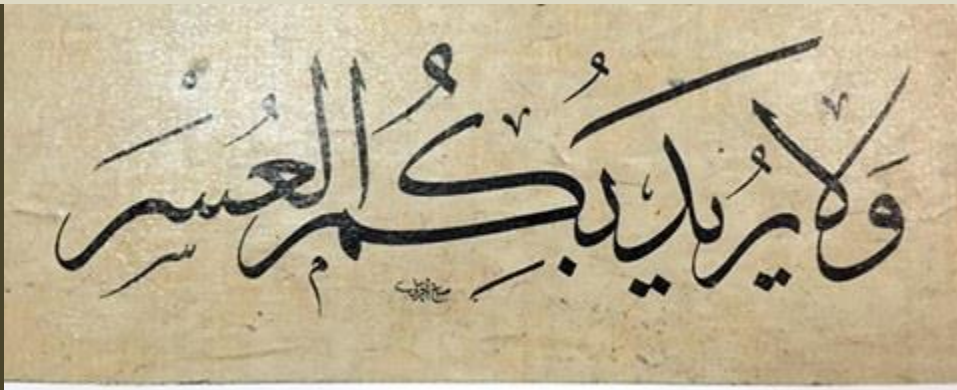 وَلَا يُرِيدُ بِكُمُ العُسْرَ